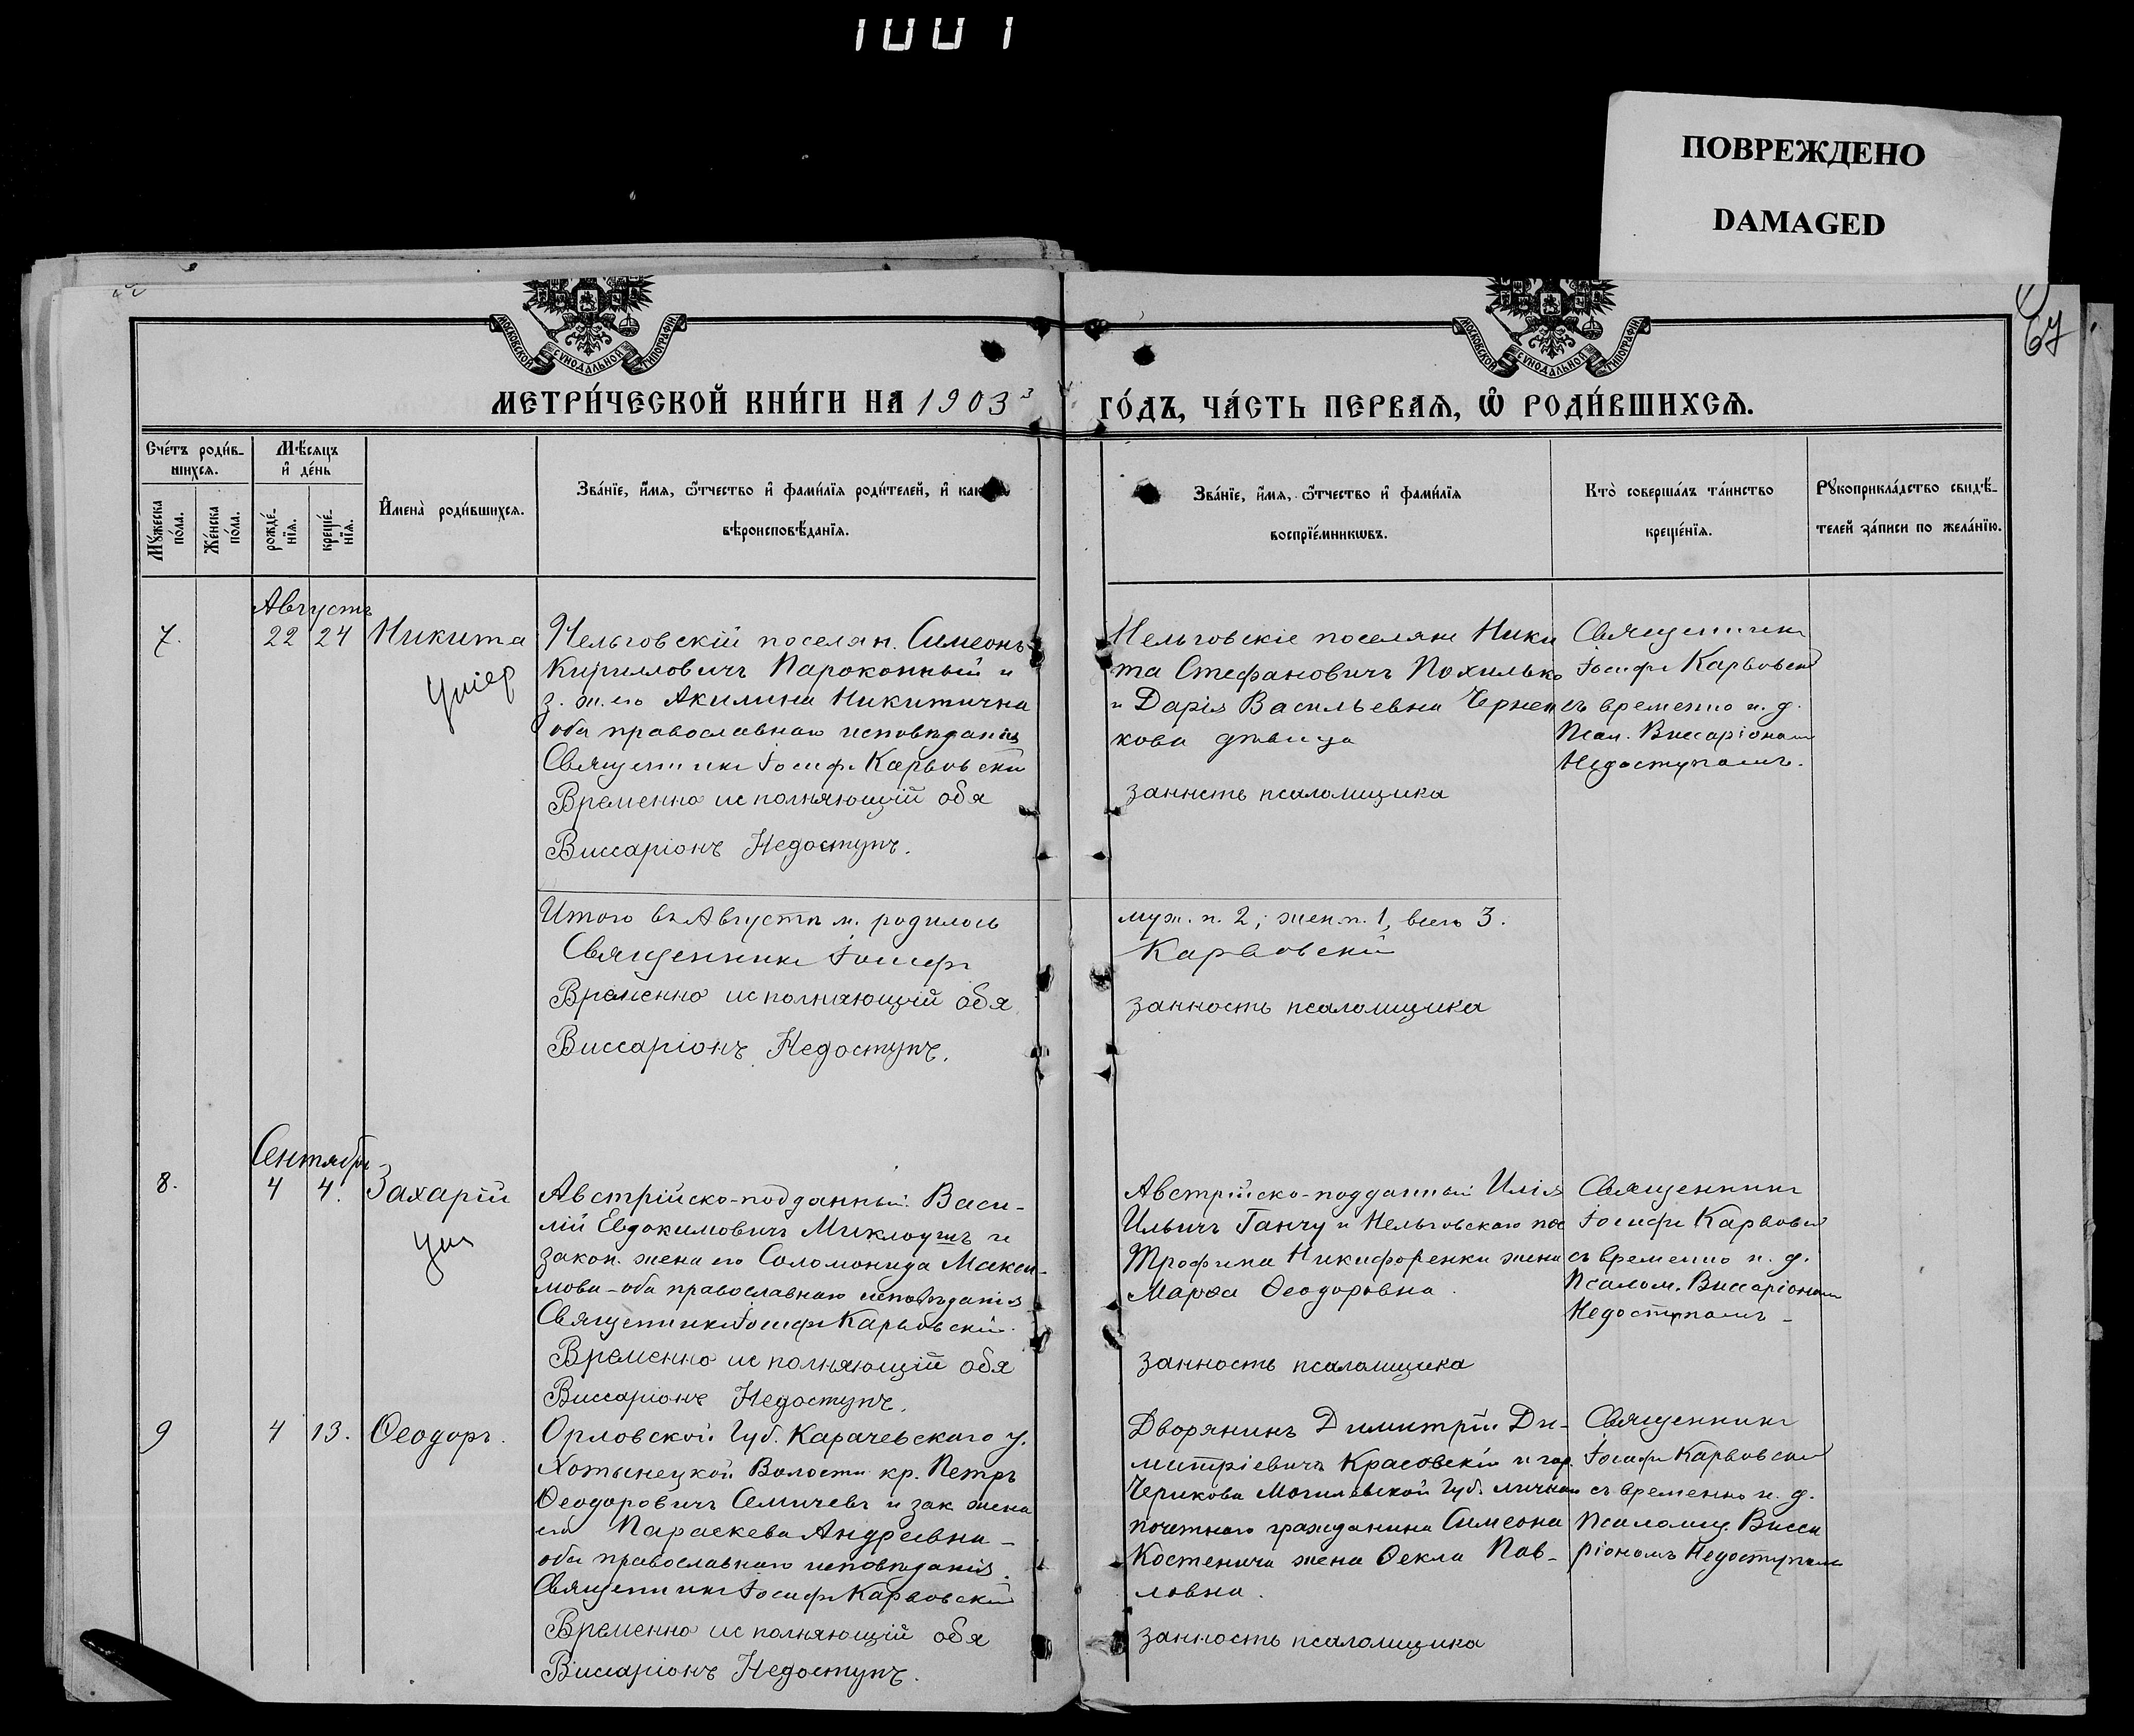 1001
ПОВРЕЖДЕНО
DAMAGED
67
МОСКОВСКОЙ СѴНОДАЛЬНОЙ ТИПОГРАФІИ
МОСКОВСКОЙ СѴНОДАЛЬНОЙ ТИПОГРАФІИ
МЕТРИ́ЧЕСКОЙ КНИ́ГИ НА 1903
ГО́ДЪ, ЧА́СТЬ ПЕРВАѦ, Ѡ РОДИ́ВШИХСѦ.
Сче́тъ роди́в-
шихсѧ.
Мѣ́сѧцъ
и҆ де́нь
Мꙋ́жеска по́ла.
Же́нска по́ла.
рожде́-
нїѧ.
креще́-
нїѧ.
И҆мена̀ роди́вшихсѧ.
Зва́нїе, и҆́мѧ, ѻ҆́тчество и҆ фами́лїѧ роди́телей, и҆ како́гѡ
вѣроисповѣ́данїѧ.
Зва́нїе, и҆́мѧ, ѻ҆́тчество и҆ фами́лїѧ
воспрїе́мникѡвъ.
Кто̀ соверша́лъ та́инство
креще́нїѧ.
Рꙋкоприкла́дство свидѣ́-
телей за́писи по жела́нїю.
Августъ
7.
22
24
Никита
Умер
Нельговскій поселян. Симеонъ
Кирилловичъ Пароконный и
з. ж. его Акилина Никитична
оба православнаго исповѣданія
Священникъ Іосифъ Карвовскій
Временно исполняющій обя
Виссаріонъ Недоступъ.
Нельговскіе поселяне Ники
та Стефановичъ Похилько
и Дарія Васильевна Чернен
кова дѣвица
занность псаломщика
Священникъ
Іосифъ Карвовскій
съ временно и. д.
Псал. Виссаріономъ
Недоступомъ.
Итого въ Августѣ м. родилось
муж. п. 2, жен. п. 1, всего 3.
Священникъ Іосифъ
Карвовскій
Временно исполняющій обя
занность псаломщика
Виссаріонъ Недоступъ.
Сентябрь
8.
4
4.
Захарій
Ум
Австрійско-подданный Васи-
лій Евдокимовичъ Миклоушъ и
закон. жена его Соломонида Макси-
мова - оба православнаго исповѣданія
Священникъ Іосифъ Карвовскій.
Временно исполняющій обя
Виссаріонъ Недоступъ.
Австрійско-подданный Илія
Ильичъ Ганчу и Нельговскаго пос
Трофима Никифоренки жена
Марѳа Ѳеодоровна.
занность псаломщика
Священникъ
Іосифъ Карвовскій
съ временно и. д.
Псалом. Виссаріономъ
Недоступомъ -
9
4
13.
Ѳеодоръ.
Орловской Губ. Карачевскаго у.
Хотынецкой Волости кр. Петръ
Ѳеодоровичъ Семичевъ и зак жена
его Параскева Андреевна -
оба православнаго исповѣданія.
Священникъ Іосифъ Карвовскій
Временно исполняющій обя
Виссаріонъ Недоступъ.
Дворянинъ Димитрій Ди-
митріевичъ Красовскій и гор.
Черикова Могилевской Губ. личнаго
почетнаго гражданина Симеона
Костенича жена Ѳекла Пав-
ловна.
занность псаломщика
Священникъ
Іосифъ Карвовскій
съ временно и. д.
Псаломщ. Висса
ріономъ Недоступомъ